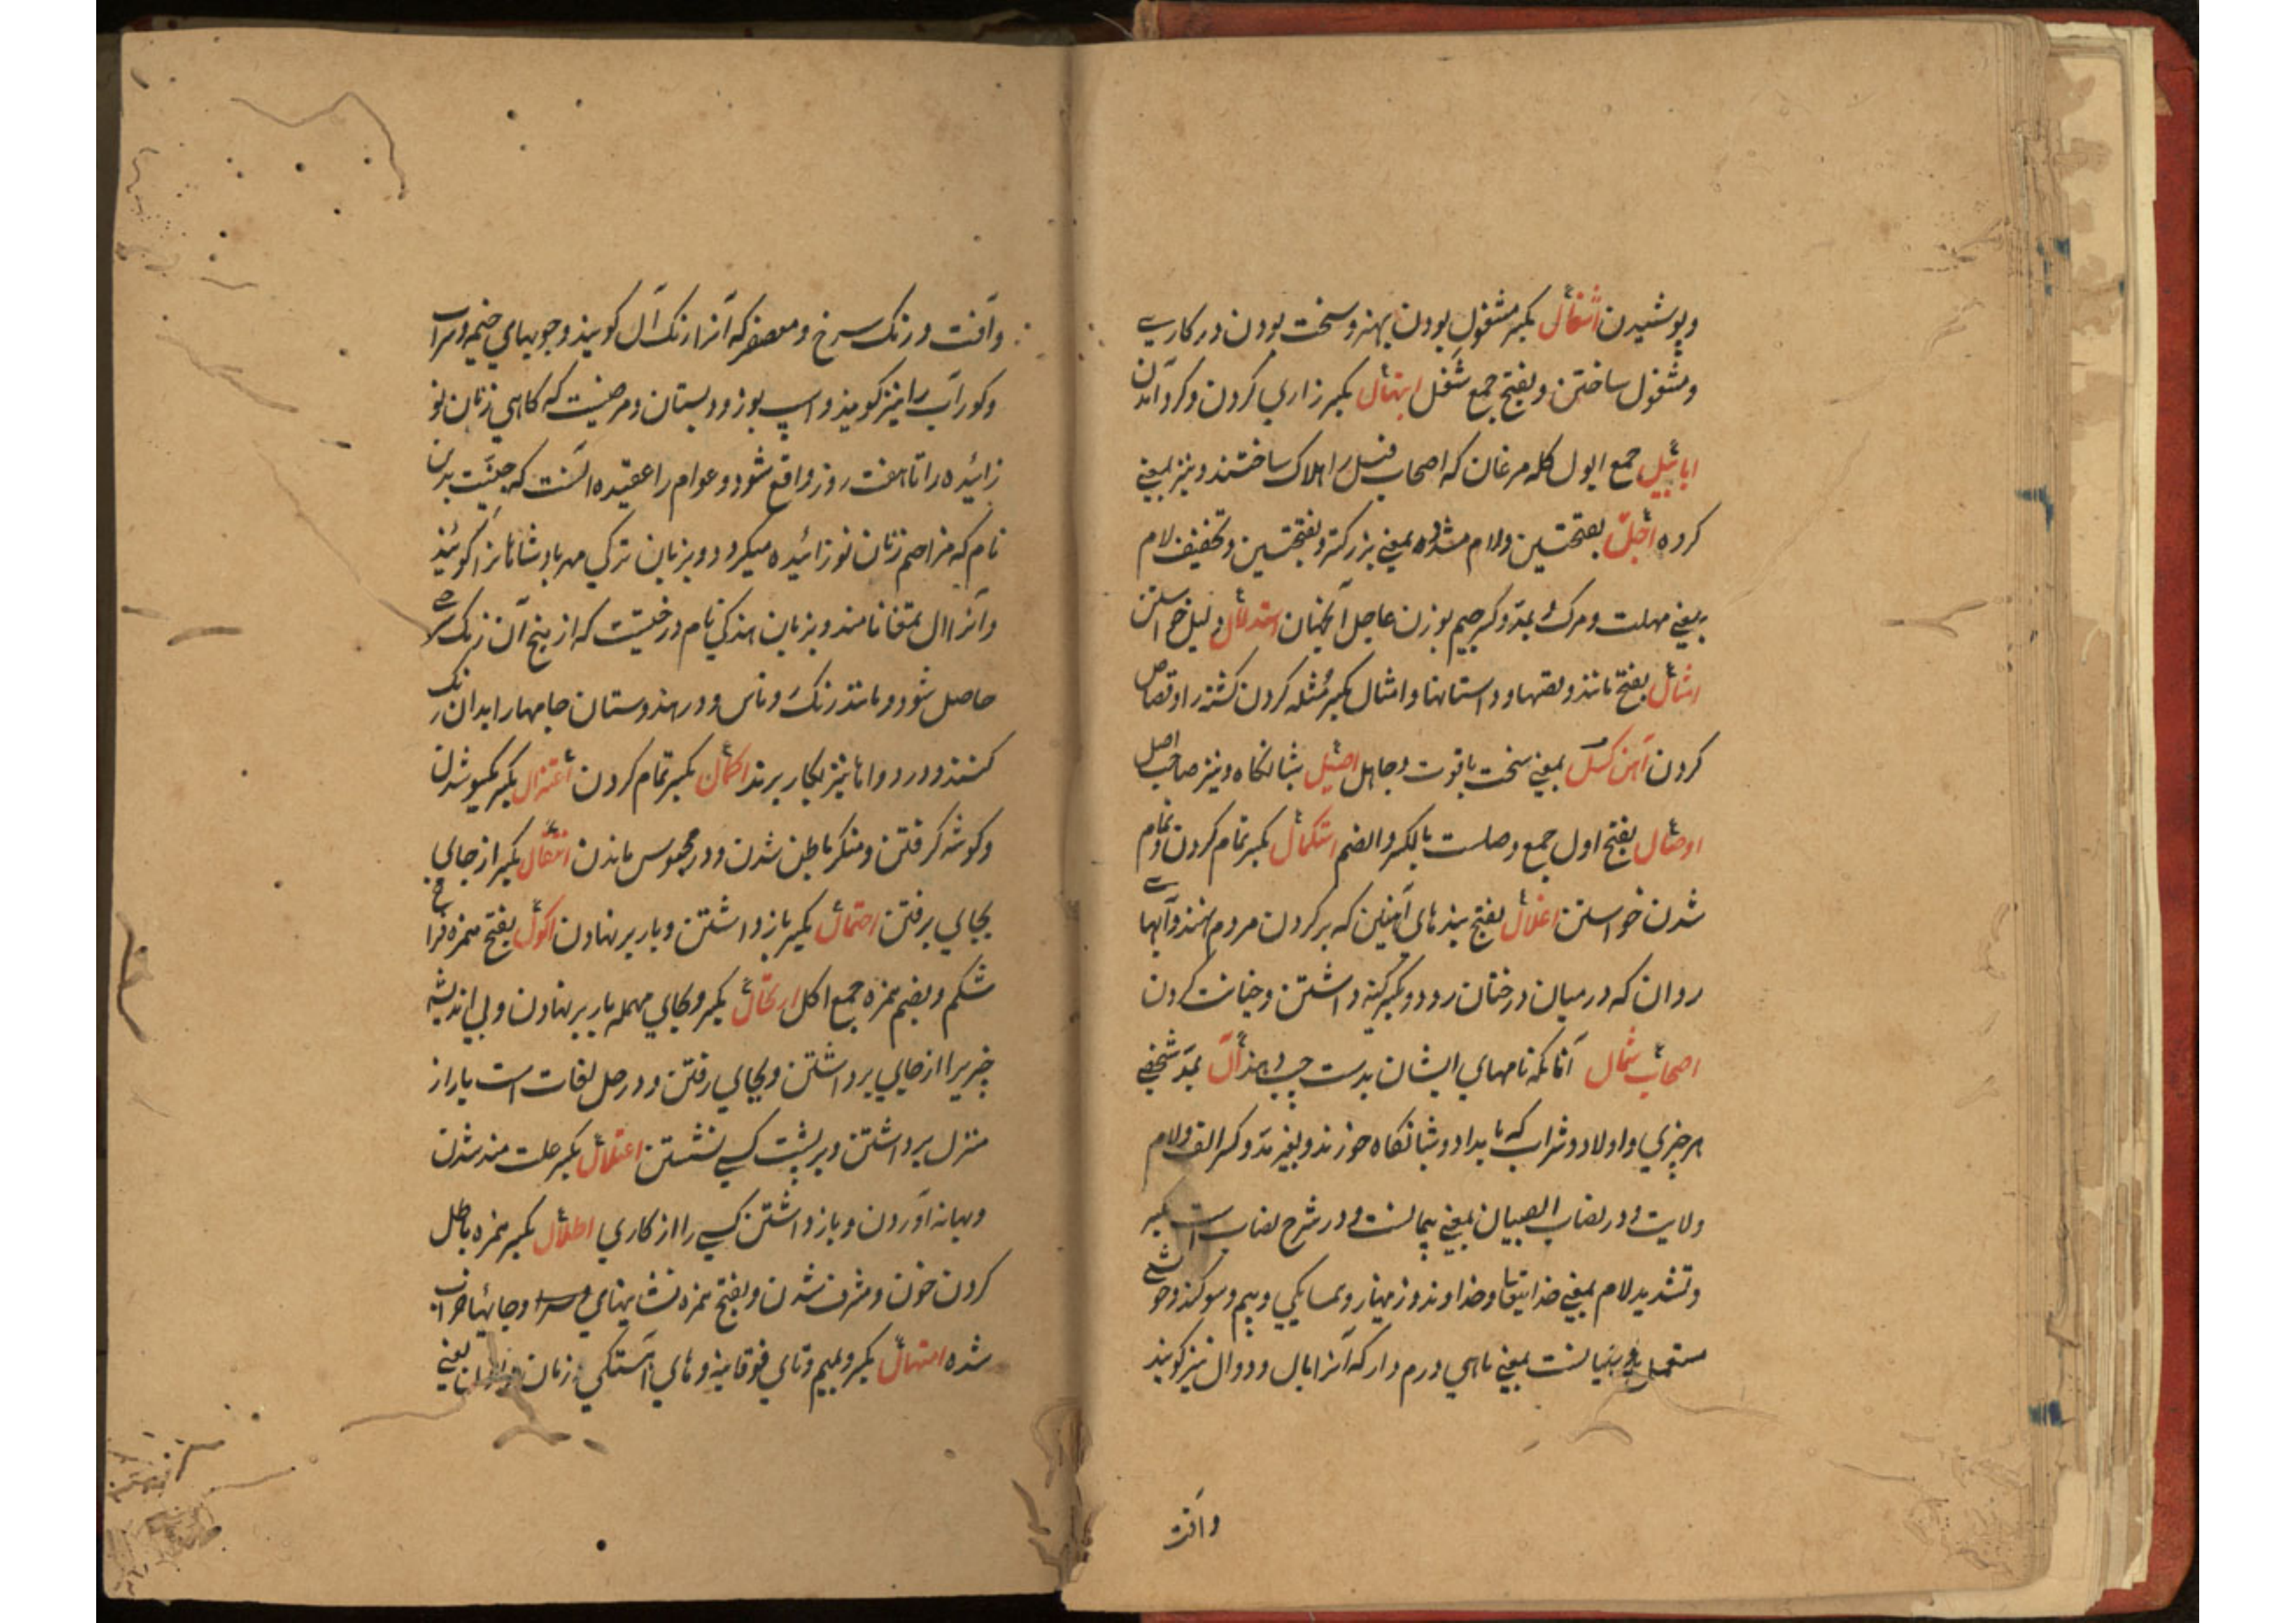 وپوشیدن اشغال بکسر مشغول بودن بهنر وسخت بودن در کاری
ومشغول ساختن وبفتح جمع شغل ابتهال بکسر زاری کردن وکرد آمدن
ابابیل جمع ابول کله مرغان که اصحاب فیل را هلاک ساختند ونیز بمعنی
کرده اجل بفتحتین ولام مشدده بمعنی بزرکتر وبفتحتین وتخفیف لام
بمعنی مهلت ومرک وبمد وکسر جیم بوزن عاجل آنجهان استدلال دلیل خواستن
امثال بفتح مانند وقصها وداستانها وامثال بکسر مثله کردن کشتنرا وقصاص
کردن آهن کسل بمعنی سخت باقوت وجاهل اصیل شبانکاه ونیز صاحب اصل
اوصال بفتح اول جمع وصلست بالکسر والضم استکمال بکسر تمام کردن وتمام
شدن خواستن اغلال بفتح بندهای آهنین که بر کردن مردم نهند وآبهای
روان که درمیان درختان رود وبکسر کینه داشتن وخیانت کردن
اصحاب شمال آنانکه نامهای ایشان بدست چپ دهند آل بمد شخصی
هر چیزی واولاد وشراب که بامداد وشبانکاه خورند وبغیر مد وکسر الف ولام
ولایت ودر نصاب الصبیان بمعنی پیمانست ودر شرح نصاب است بکسر
وتشدید لام بمعنی خدایتعا وخداوند وزینهار وهمسایکی وبیم وسوکند و
مستعمل بمعنی ماهی درم دار که آنرا بال ودوال نیز کویند
وآفت
وآفت ورنک سرخ ومعصفر که آنرا رنک آل کویند وچوبهای خیمه وسراب
وکورآب را نیز کویند واسپ بوز ودبستان ومرضیست که کاهی زنان نو
زائیده را تا هفت روز واقع شود وعوام را عقیده آنست که جنیست بدین
نام که مزاحم زنان نو زائیده میکردد وبزبان ترکی مهر پادشاهانرا کویند
وآنرا آل تمغا نامند وبزبان هندکی نام درخیست که از بیخ آن رنک سرخی
حاصل شود ومانند رنک وناس ودر هندوستان جامها را بدان رنک
کنند ودر دواها نیز بکار برند اکمال بکسر تمام کردن اعتزال بکسر یکسو شدن
وکوشه کرفتن ومنکر باطن شدن ودر محبوس ماندن انتقال بکسر از جایی
بجای برفتن احتمال بکسر باز داشتن وبار برنهادن اکول بفتح همزه فراخ
شکم وبضم همزه جمع اکل ارتحال بکسر وحای مهمله بار برنهادن وبی اندیشه
چیزیرا از جایی برداشتن وبجای رفتن ودر حل لغات است بار از
منزل برداشتن وبر پشت کسی نشستن اعتلال بکسر علت مند شدن
وبهانه آوردن وباز داشتن کسی را از کاری اطلال بکسر همزه باطل
کردن خون ومشرف شدن وبفتح همزه نشانهای سرا وجایها خراب
شده امتهال بکسر ومیم وتای فوقانیه وهای آهستکی وزمان دادن یعنی